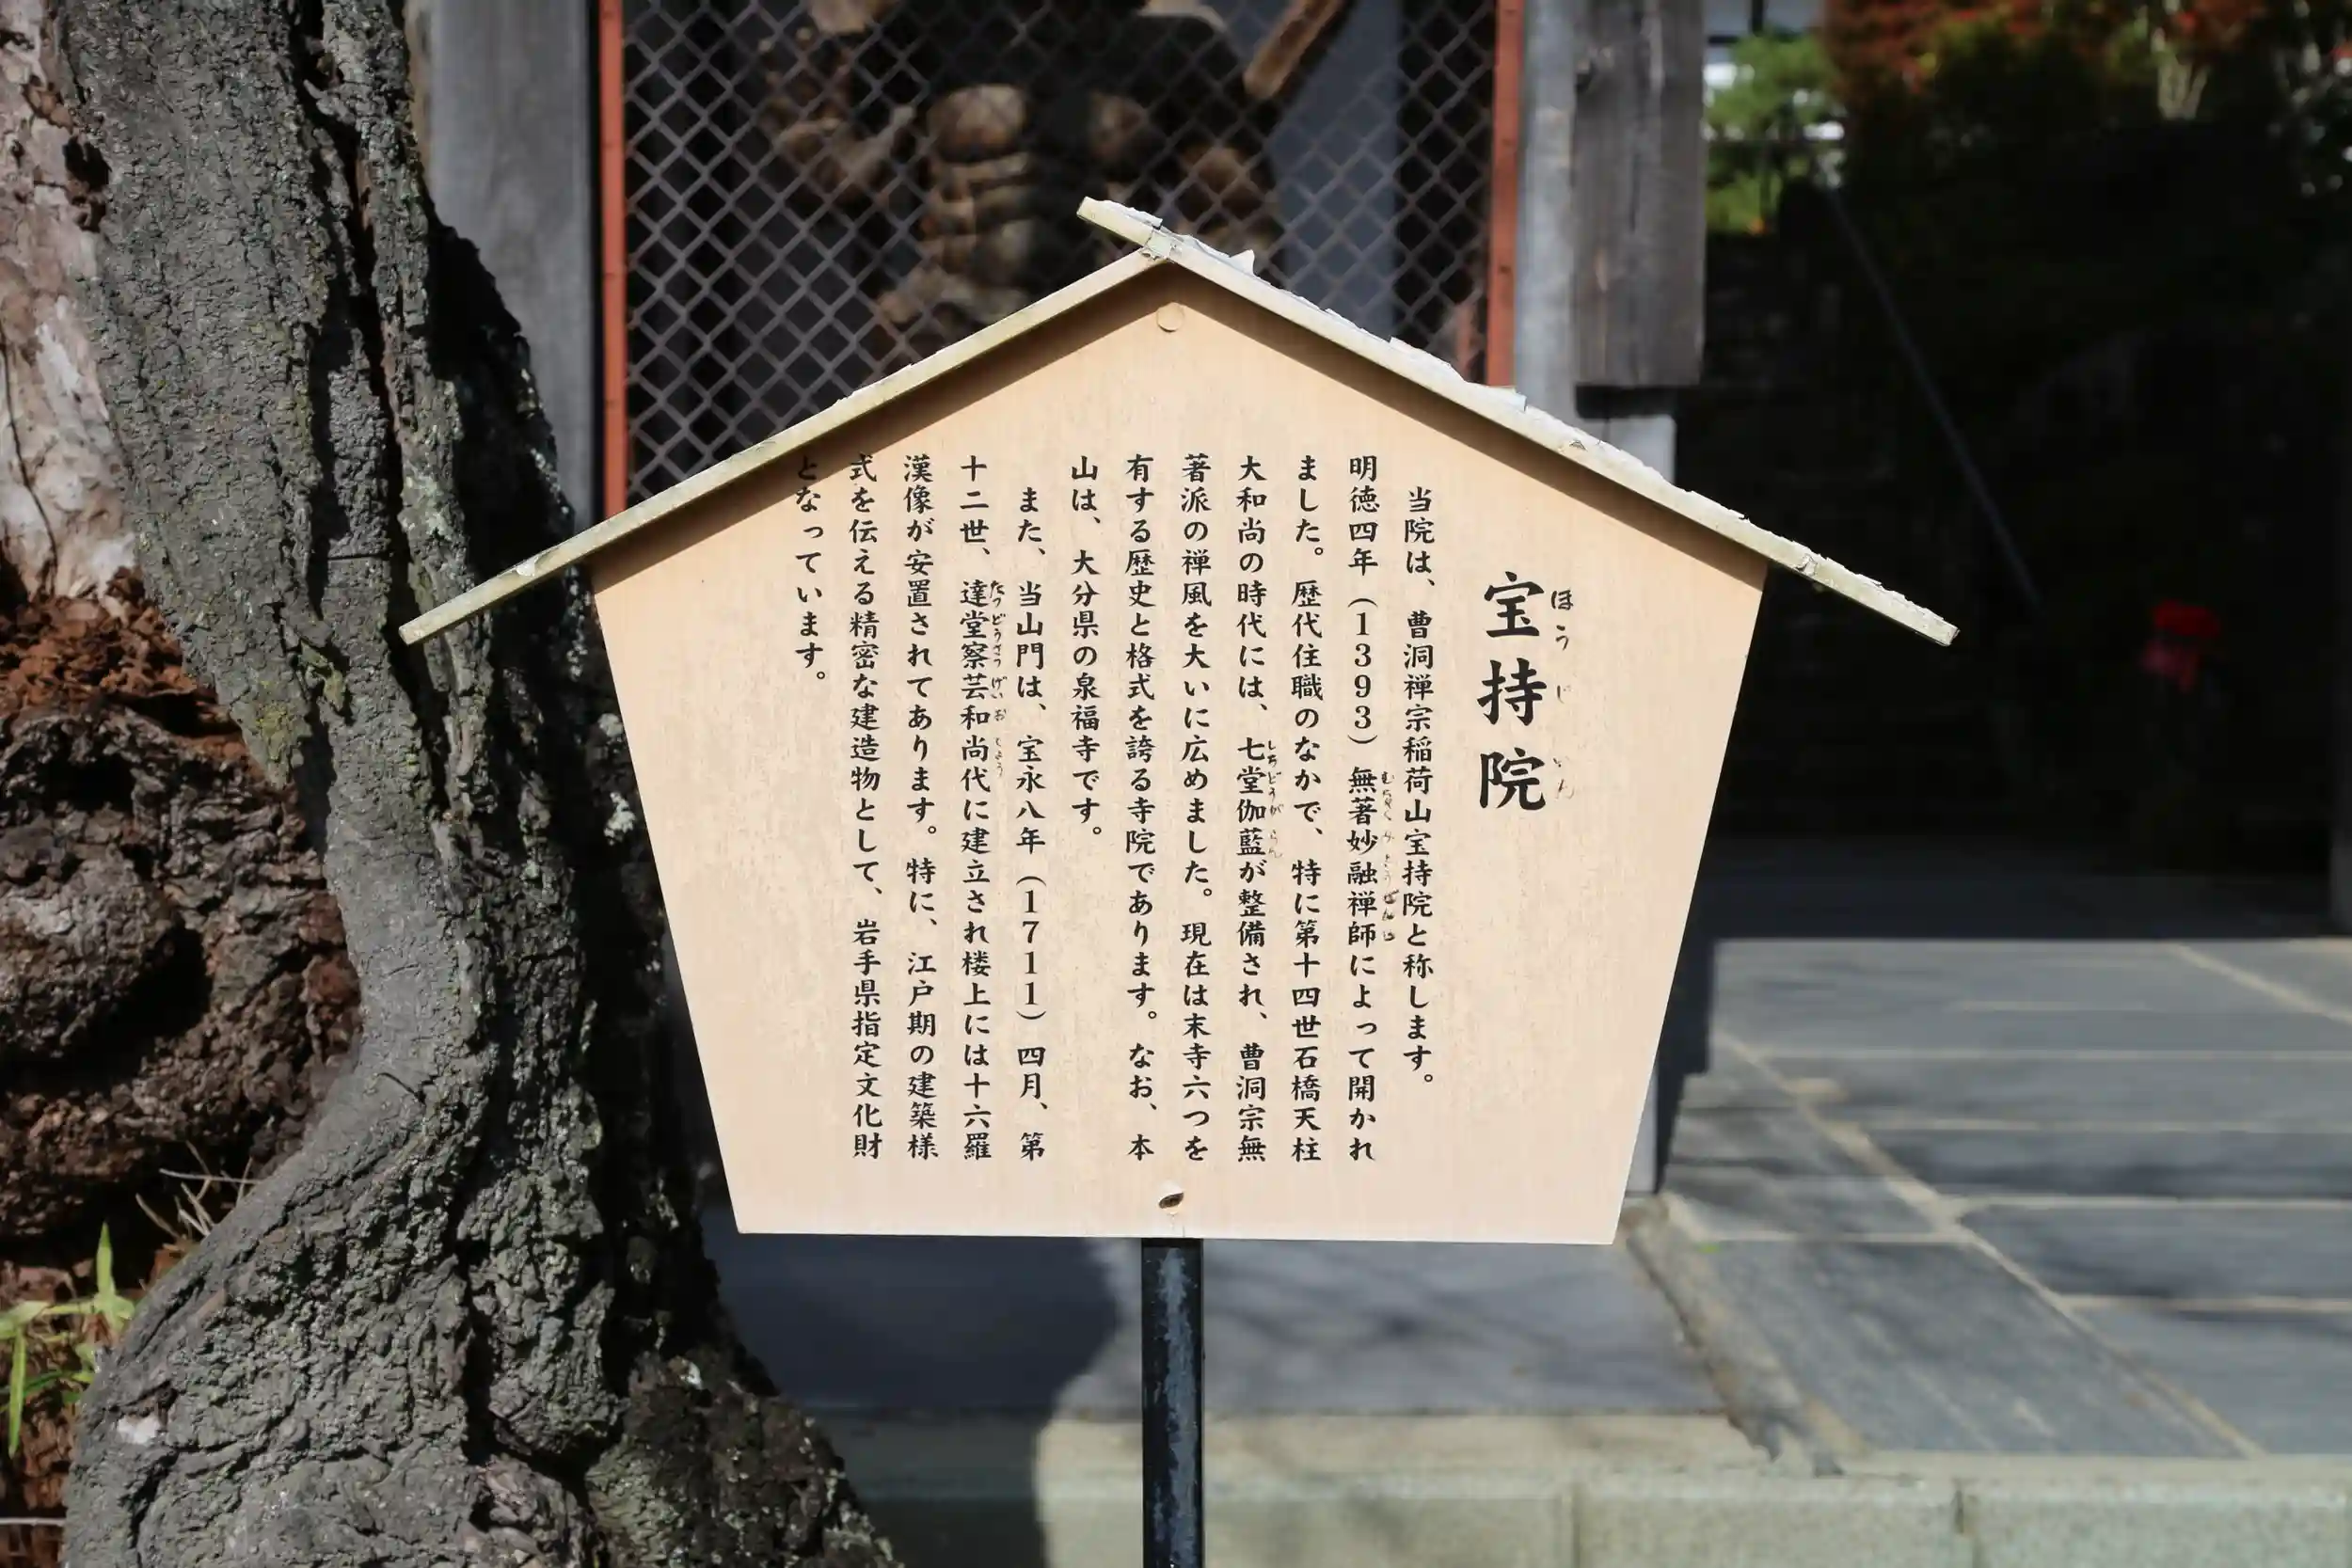 宝持院
当院は、曹洞禅宗稲荷山宝持院と称します。
明徳四年（1393）無著妙融禅師によって開かれ
ました。歴代住職のなかで、特に第十四世石橋天柱
大和尚の時代には、七堂伽藍が整備され、曹洞宗無
著派の禅風を大いに広めました。現在は末寺六つを
有する歴史と格式を誇る寺院であります。なお、本
山は、大分県の泉福寺です。
また、当山門は、宝永八年（1711）四月、第
十二世、達堂察芸和尚代に建立され楼上には十六羅
漢像が安置されてあります。特に、江戸期の建築様
式を伝える精密な建造物として、岩手県指定文化財
となっています。
ほうじいん
むちゃくみょうゆうぜんじ
しちどうがらん
たつどうさつげいおしょう